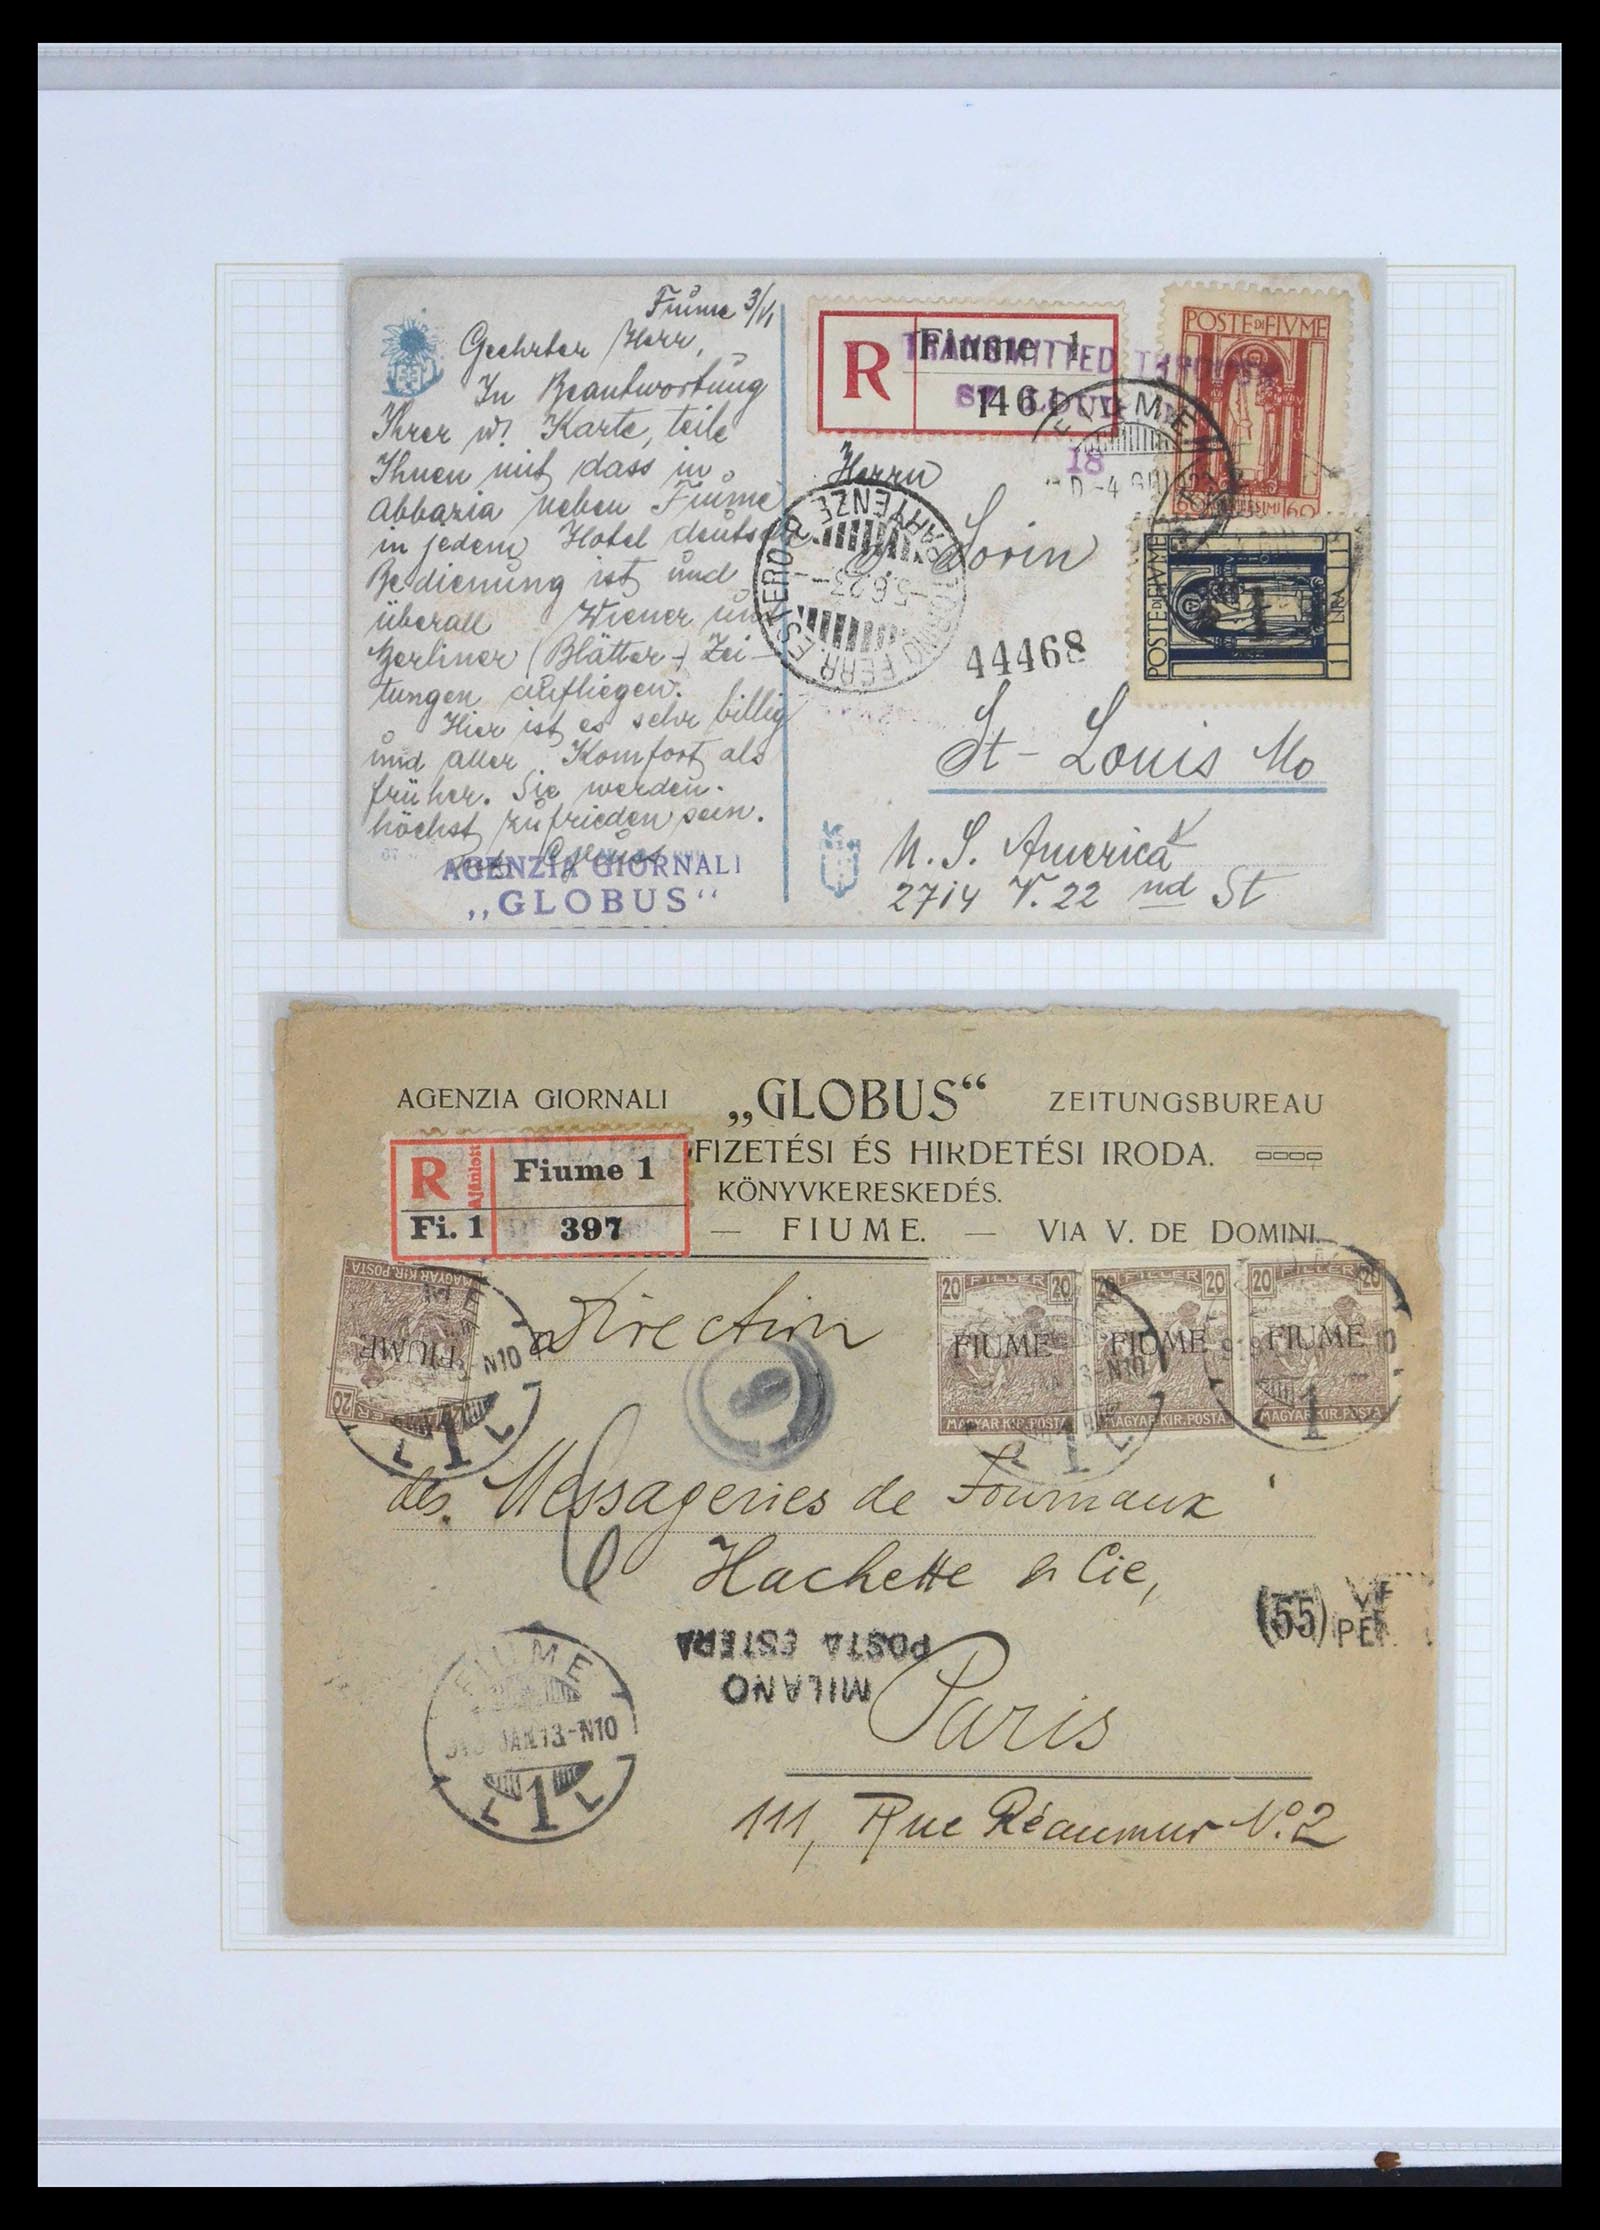 Fiume 3/VI
Geehrter Herr,
In Beantwortung
Ihrer w. Karte, teile
Ihnen mit dass in
Abbazia neben Fiume
in jedem Hotel deutsche
Bedienung ist und
überall Wiener und
Berliner (Blätter-) Zei-
tungen aufliegen.
Hier ist es sehr billig
und aller Komfort als
früher. Sie werden
höchst zufrieden sein.
AGENZIA GIORNALI
„GLOBUS“
R
Fiume 1
1461
TRANSMITTED THROUGH
ST. LOUIS
18
FIUME
POSTE DI FIVME
60 CENTESIMI 60
POSTE DI FIVME
1 LIRA 1
TORINO FERR. ESTERO
PARTENZE
5.6.23
Herrn
Sorin
44468
St-Louis Mo
U. S. America
2714 N. 22 nd St
AGENZIA GIORNALI „GLOBUS“ ZEITUNGSBUREAU
FIZETÉSI ÉS HIRDETÉSI IRODA.
KÖNYVKERESKEDÉS.
— FIUME. — VIA V. DE DOMINI.
R Ajánlott Fiume 1
Fi. 1 397
MAGYAR KIR. POSTA
FIUME
20
20 FILLÉR 20
FIUME
MAGYAR KIR. POSTA
20 FILLÉR 20
FIUME
MAGYAR KIR. POSTA
20 FILLÉR 20
FIUME
MAGYAR KIR. POSTA
Direction
des Messageries de Journaux
Hachette & Cie,
(55)
MILANO
POSTA ESTERA
Paris
FIUME
JAN.13.-N10
1
111, Rue Réaumur No. 2